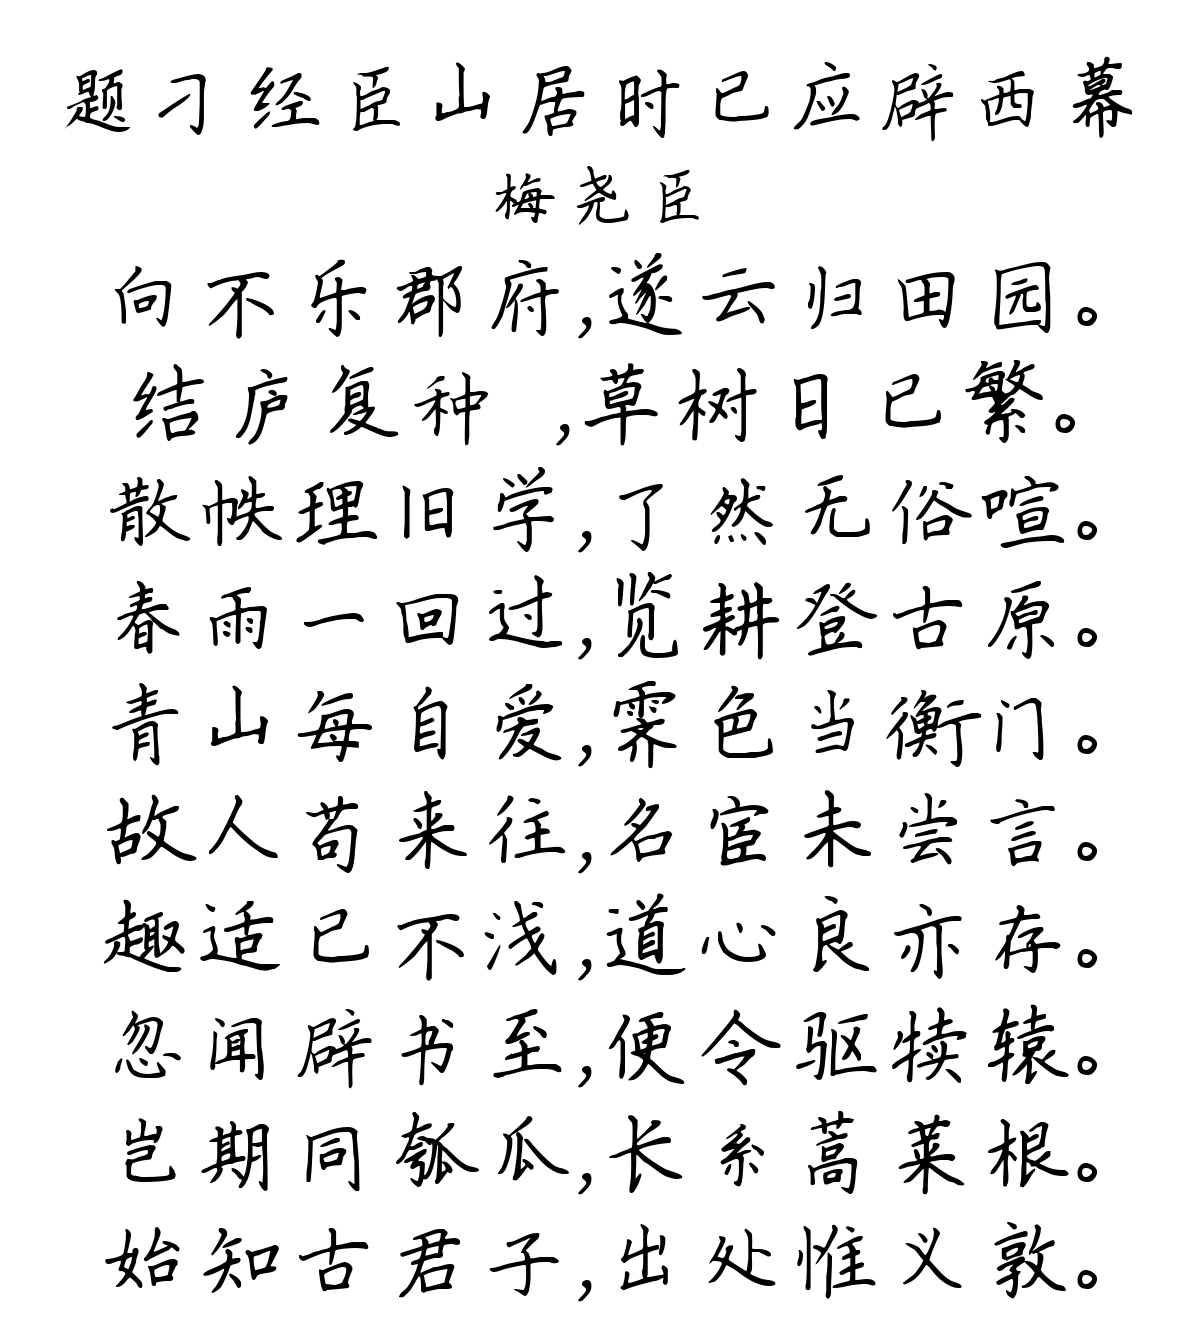 题刁经臣山居时已应辟西幕
梅尧臣
向不乐郡府,遂云归田园。
结庐复种 ,草树日已繁。
散帙理旧学,了然无俗喧。
春雨一回过,览耕登古原。
青山每自爱,霁色当衡门。
故人苟来往,名宦未尝言。
趣适已不浅,道心良亦存。
忽闻辟书至,便令驱犊辕。
岂期同瓠瓜,长系蒿莱根。
始知古君子,出处惟义敦。